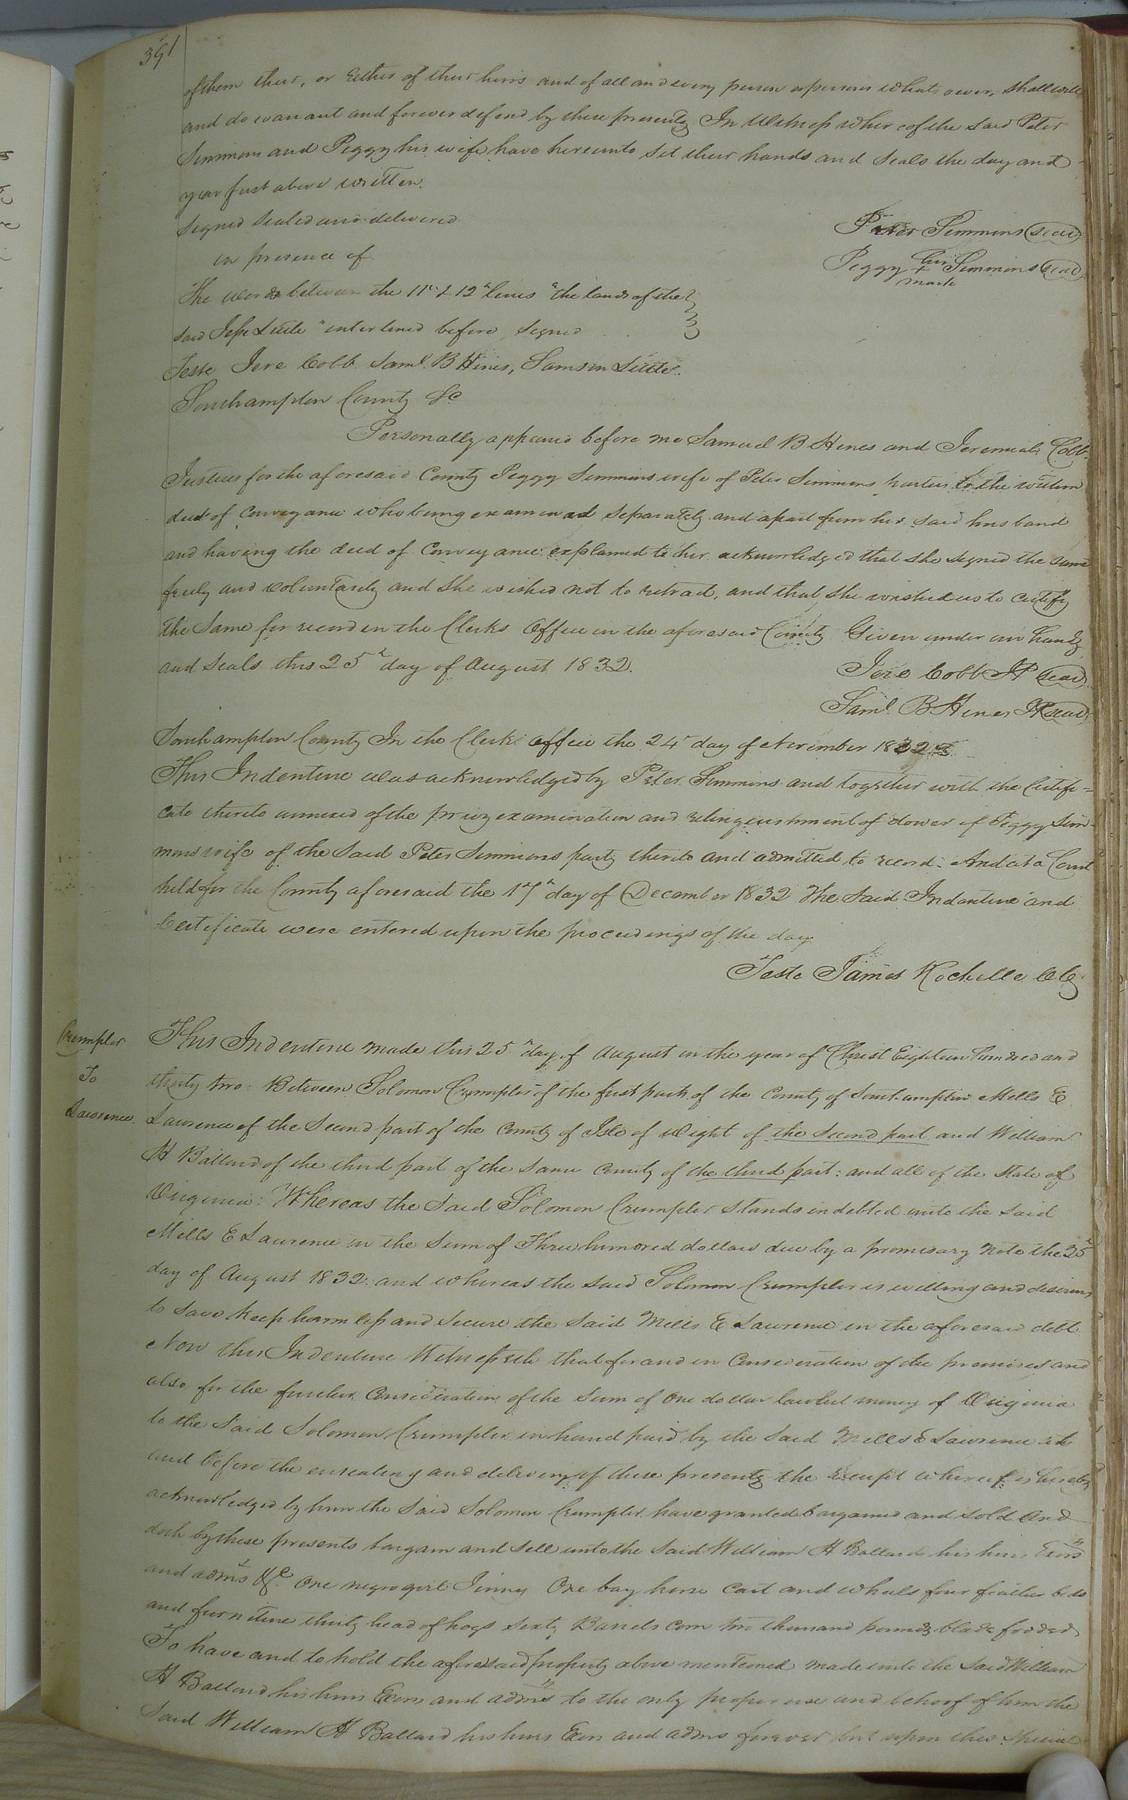 391
of them their, or Either of their heirs and of all and every person or persons what soever, shall will
and do warrant and forever defend by these presents In Witness whereof the said Peter
Simmons and Peggy his wife have hereunto set their hands and seals the day and
year first above written.
Signed sealed and delivered
Peter Simmons (seal)
in presence of
Peggy her + mark Simmons (seal)
The words between the 11th & 12th lines "the lands of the
said Jesse Little" interlined before signed
Teste Jere Cobb Saml. B Hines, Samson Little.
Southampton County &c
Personally appeared before me Samuel B Hines and Jeremiah Cobb
Justices for the aforesaid County Peggy Simmons wife of Peter Simmons parties to the within
deed of Conveyance who being examined separately and apart from her said husband
and having the deed of Conveyance explained to her acknowledged that she signed the same
freely and voluntarily and she wished not to retract, and that she wished us to certify
the Same for record in the Clerks Office in the aforesaid County Given under our hands
and seals this 25th day of August 1832.
Jere Cobb JP (seal)
Saml. B Hines JP (seal)
Southampton County In the Clerks office the 24th day of November 1832
This Indenture was acknowledged by Peter Simmons and together with the Certifi=
cate thereto annexed of the privy examination and relinquishment of dower of Peggy Sim-
mons wife of the Said Peter Simmons party thereto and admitted to record: And at a Court
held for the County aforesaid the 17th day of December 1832 The Said Indenture and
Certificate were entered upon the proceedings of the day
Teste James Rochelle CC
Crumpler
To
Lawrence
This Indenture made this 25th day of August in the year of Christ Eighteen hundred and
thirty two. Between Solomon Crumpler of the first part of the County of Southampton Mills E
Lawrence of the Second part of the County of Isle of Wight of the Second part and William
H Ballard of the third part of the Same County of the third part: and all of the State of
Virginia: Whereas the Said Solomon Crumpler Stands indebted unto the Said
Mills E Lawrence in the Sum of Three hundred dollars due by a promisary Note the 25th
day of August 1832: and whereas the Said Solomon Crumpler is willing and desirous
to save keep harmless and secure the Said Mills E Lawrence in the aforesaid debt
Now this Indenture Witnesseth that for and in Consideration of the premises and
also for the further Consideration of the Sum of One dollar lawful money of Virginia
to the Said Solomon Crumpler in hand paid by the Said Mills E Lawrence at
and before the ensealing and delivery of these presents the Receipt whereof is hereby
acknowledged by him the Said Solomon Crumpler have granted bargained and sold and
doth by these presents bargain and sell unto the Said William H Ballard his heirs Exors
and adms &c. One negro girl Jinny One bay horse Cart and wheels four feather beds
and furniture thirty head of hogs sixty Barrels corn two thousand pounds blade fodder
To have and to hold the aforesaid property above mentioned made unto the Said William
H Ballard his heirs Exors and adms to the only proper use and behoof of him the
Said William H Ballard his heirs Exors and adms forever but upon this Special